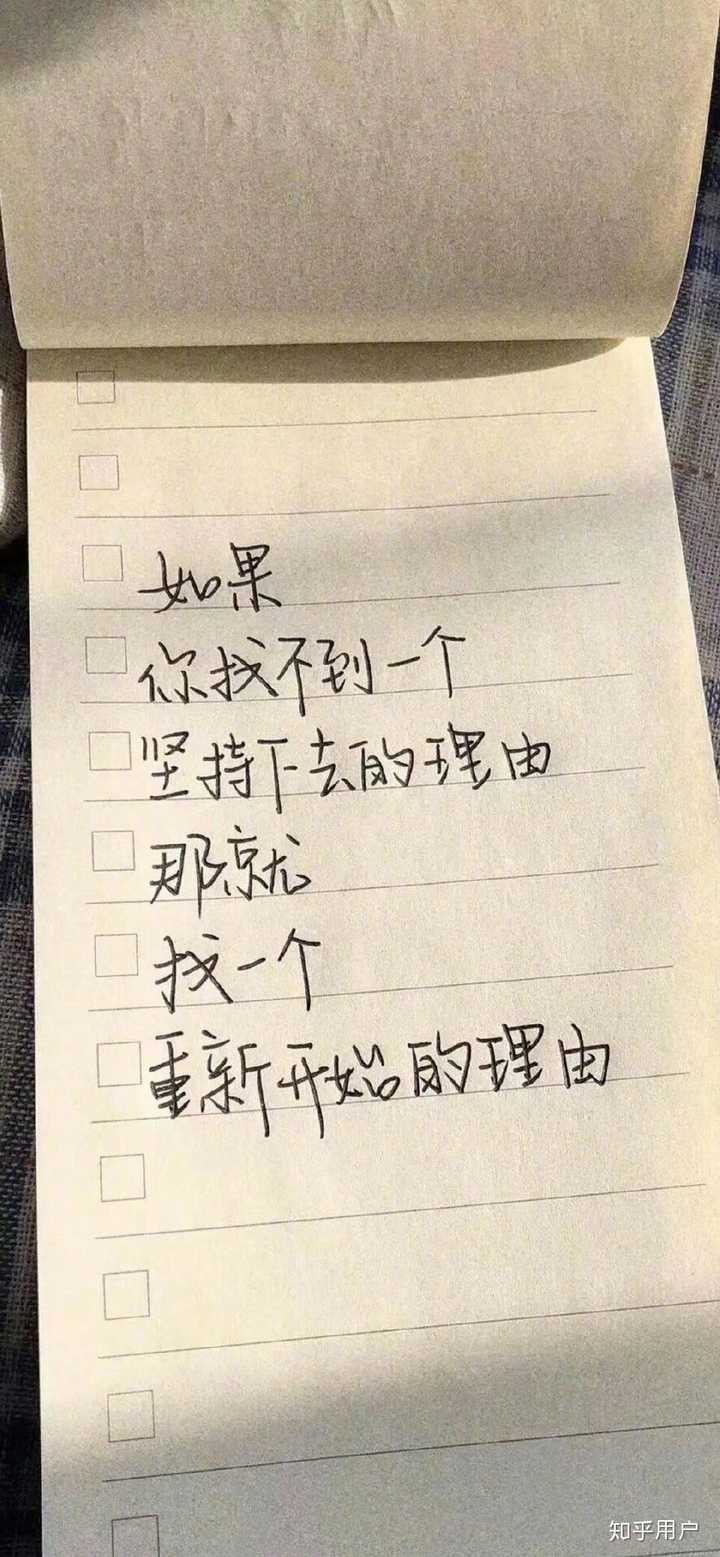 如果
你找不到一个
坚持下去的理由
那就
找一个
重新开始的理由
知乎用户